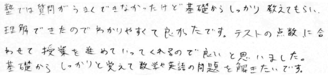 塾では質問がうまくできなかったけど基礎からしっかり教えてもらい、
理解できたのでわかりやすくて良かったです。テストの点数に合
わせて授業を進めていってくれるので良いと思いました。
基礎からしっかりと覚えて数学や英語の問題を解きたいです。